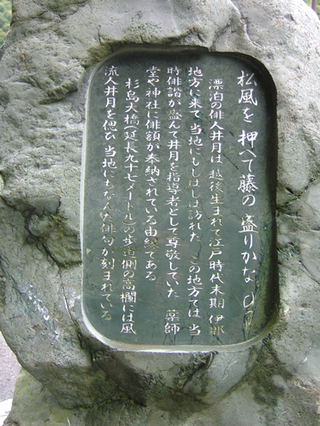 松風を 押へて藤の 盛りかな
漂泊の俳人井月は 越後生まれで江戸時代末期 伊那
地方に来て 当地にもしばしば訪れた この地方では 当
時俳諧が盛んで井月を指導者として尊敬していた 薬師
堂や神社に俳額が奉納されている由縁である
杉島大橋(延長九十七メートル)の歩道側の高欄には風
流人井月を偲び 当地にちなんだ俳句が刻まれている